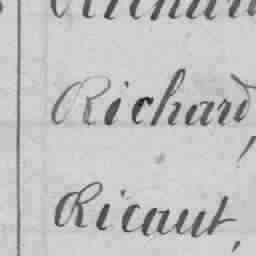 Richard,
Ricaut,